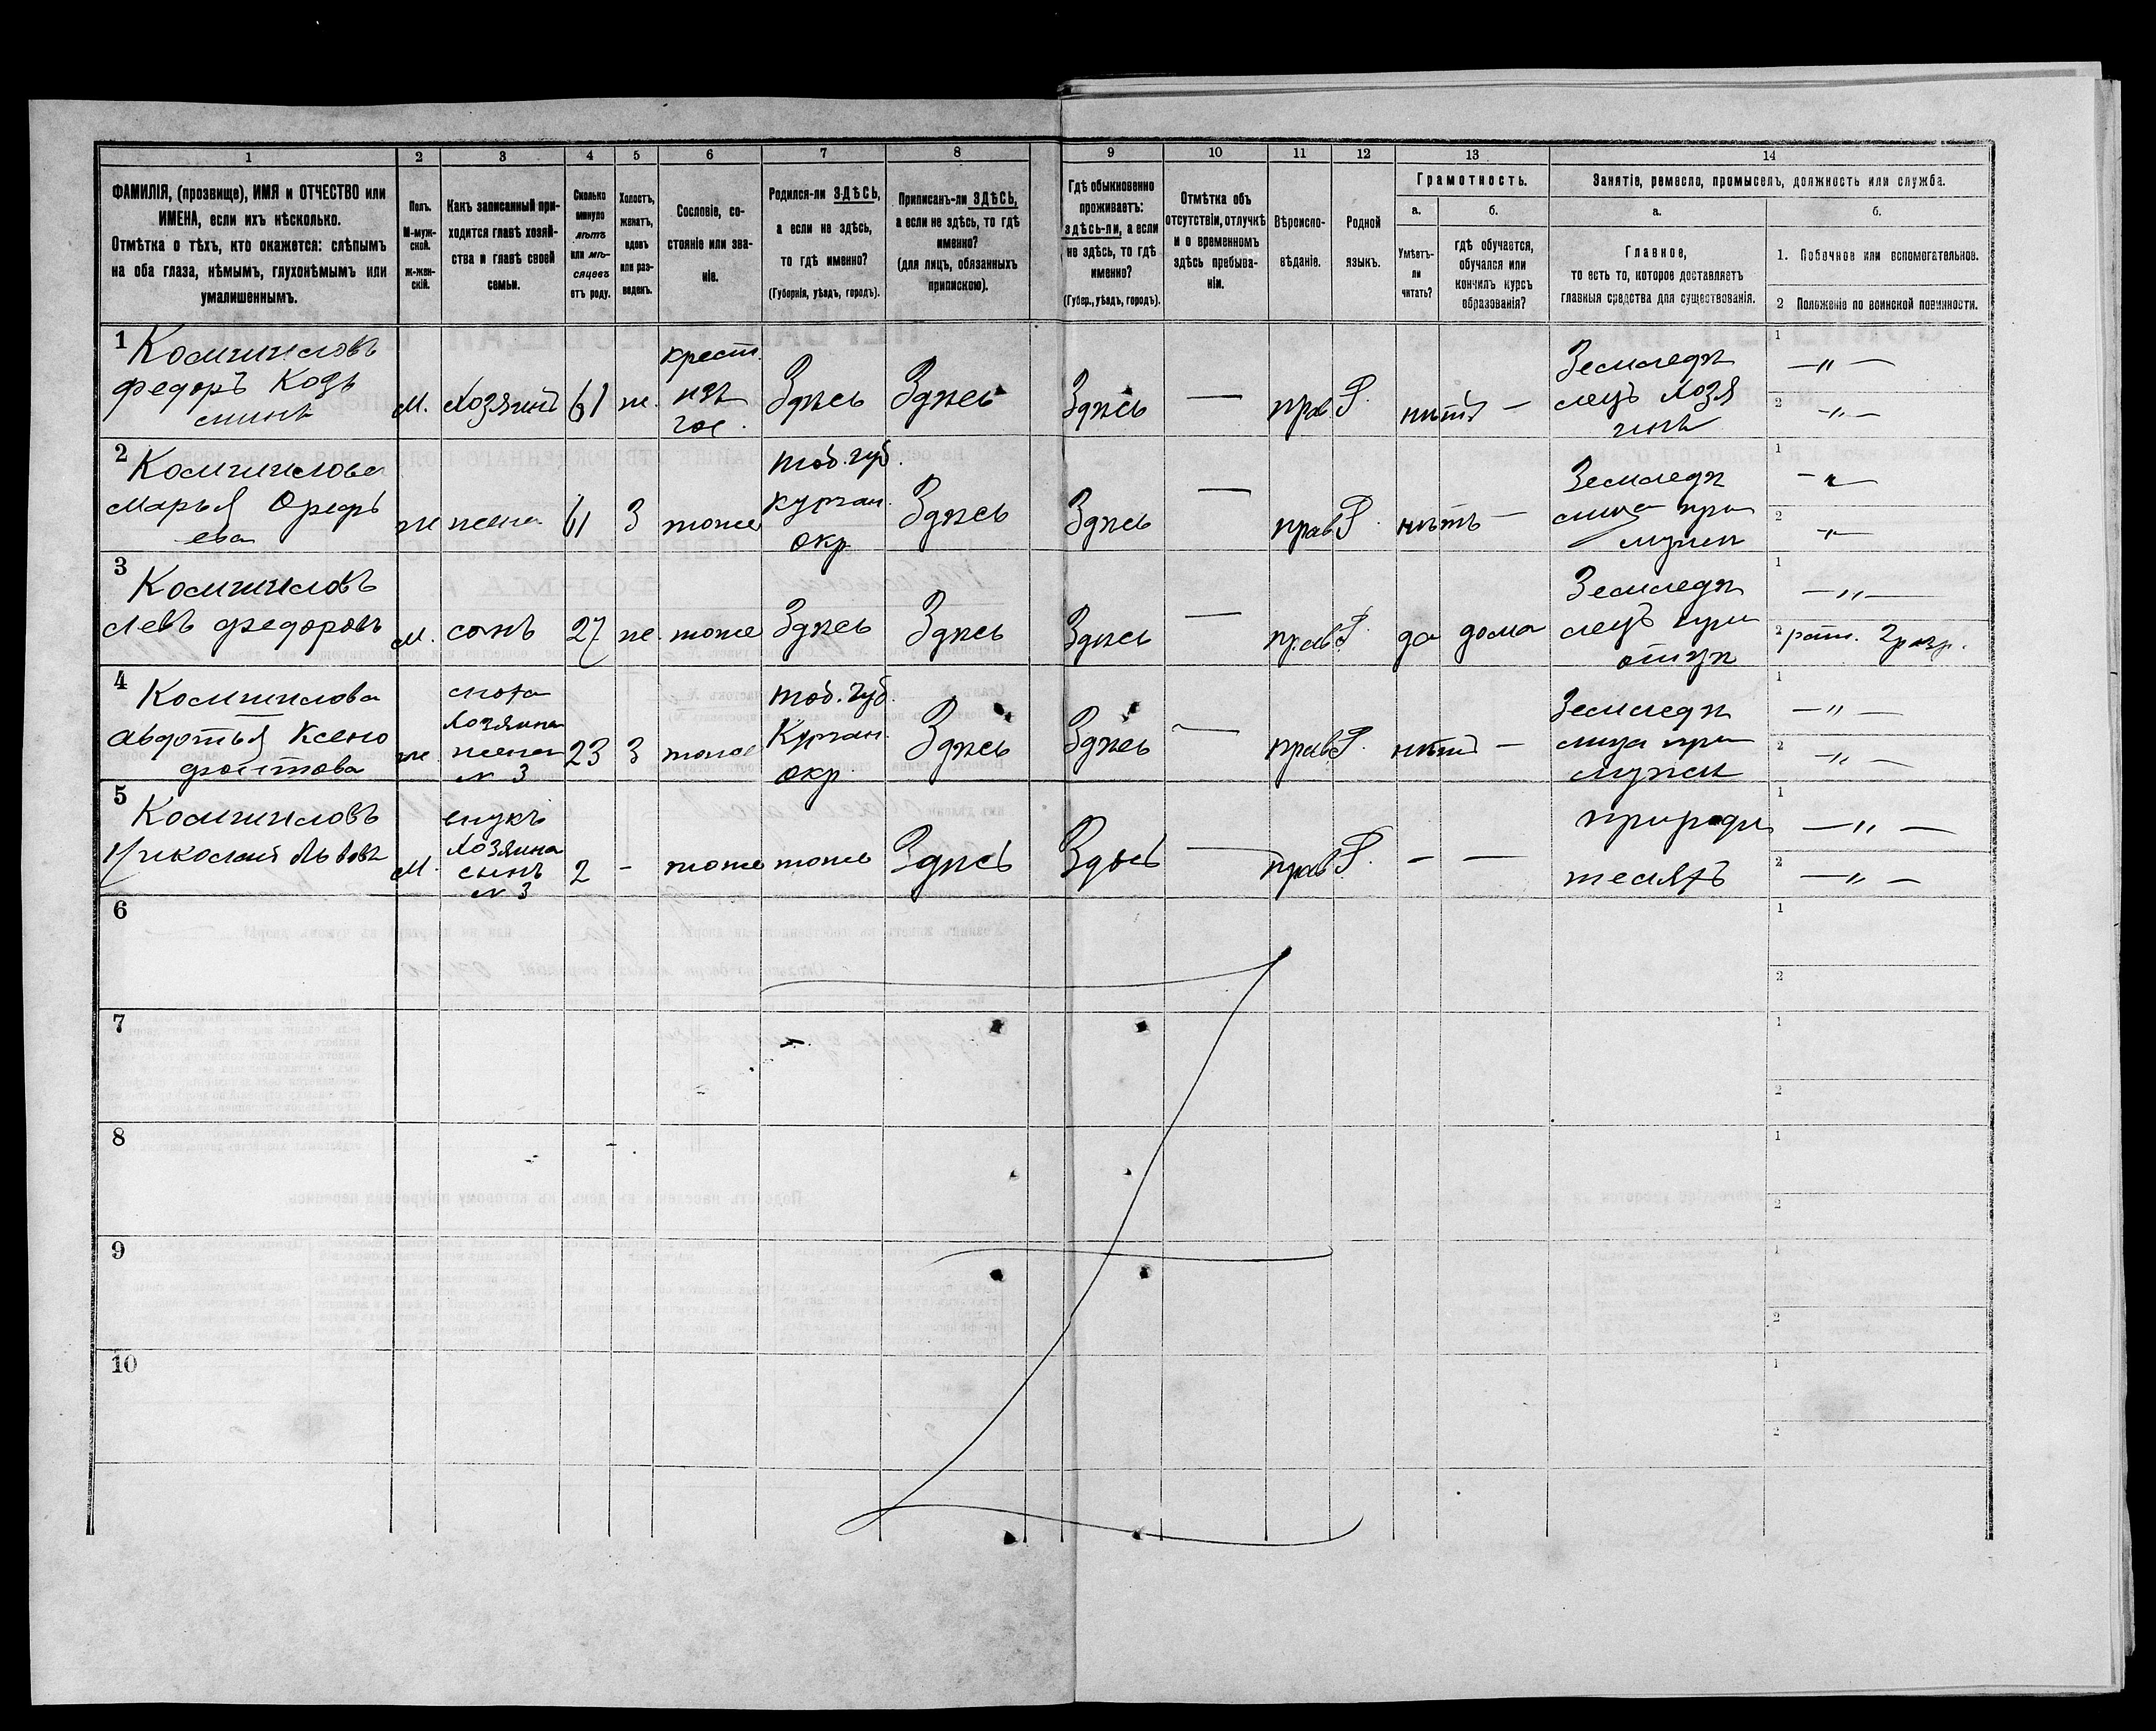 1 2 3 4 5 6 7 8 9 10 11 12 13 14
ФАМИЛІЯ, (прозвище), ИМЯ и ОТЧЕСТВО или
ИМЕНА, если ихъ нѣсколько.
Отмѣтка о тѣхъ, кто окажется: слѣпымъ
на оба глаза, нѣмымъ, глухонѣмымъ или
умалишеннымъ.
Полъ.
М-муж-
ской.
Ж-жен-
скій.
Какъ записанный при-
ходится главѣ хозяй-
ства и главѣ своей
семьи.
Сколько
минуло
лѣтъ
или мѣ-
сяцевъ
отъ роду.
Холостъ,
женатъ,
вдовъ
или раз-
веденъ.
Сословіе, со-
стояніе или зва-
ніе.
Родился-ли ЗДѢСЬ,
а если не здѣсь,
то гдѣ именно?
(Губернія, уѣздъ, городъ).
Приписанъ-ли ЗДѢСЬ,
а если не здѣсь, то гдѣ
именно?
(для лицъ, обязанныхъ
припискою).
Гдѣ обыкновенно
проживаетъ:
здѣсь-ли, а если
не здѣсь, то гдѣ
именно?
(Губер., уѣздъ, городъ).
Отмѣтка объ
отсутствіи, отлучкѣ
и о временномъ
здѣсь пребыва-
ніи.
Вѣроиспо-
вѣданіе.
Родной
языкъ.
Грамотность.
а.
Умѣетъ-
ли
читать?
б.
гдѣ обучается,
обучался или
кончилъ курсъ
образованія?
Занятіе, ремесло, промыселъ, должность или служба.
а.
Главное,
то есть то, которое доставляетъ
главныя средства для существованія.
б.
1. Побочное или вспомогательное.
2 Положеніе по воинской повинности.
1
федоръ Козь
минъ
М. Хозяинъ 61 ж.
крест.
изъ
гос.
Здѣсь Здѣсь Здѣсь — прав Р. нѣтъ —
Земледѣ
лецъ Хозя
инъ
1 — " —
2 — " —
2
Марья
ж жена 61 З тоже
тоб. губ.
курган.
окр
Здѣсь Здѣсь — прав Р. нѣтъ —
Земледѣ
лица при
мужѣ
1 — " —
2 — " —
3
Левъ федоровъ
М. сынъ 27 ж. тоже Здѣсь Здѣсь Здѣсь — прав Р. да дома
Земледѣ
лецъ при
отцѣ
1 — " —
2 рат. 2 разр.
4
Авдотья Ксено
фонтова
ж
сноха
хозяина
жена
№ 3
23 З тоже
тоб. губ.
Курган.
окр
Здѣсь Здѣсь — прав Р. нѣтъ —
Земледѣ
лица при
мужѣ
1 — " —
2 — " —
5
Николай Львовъ
М.
внукъ
хозяина
сынъ
№ 3
2 - тоже тоже Здѣсь Здѣсь — прав Р. — —
при роди
теляхъ
1 — " —
2 — " —
6 1
2
7 1
2
8 1
2
9 1
2
10 1
2